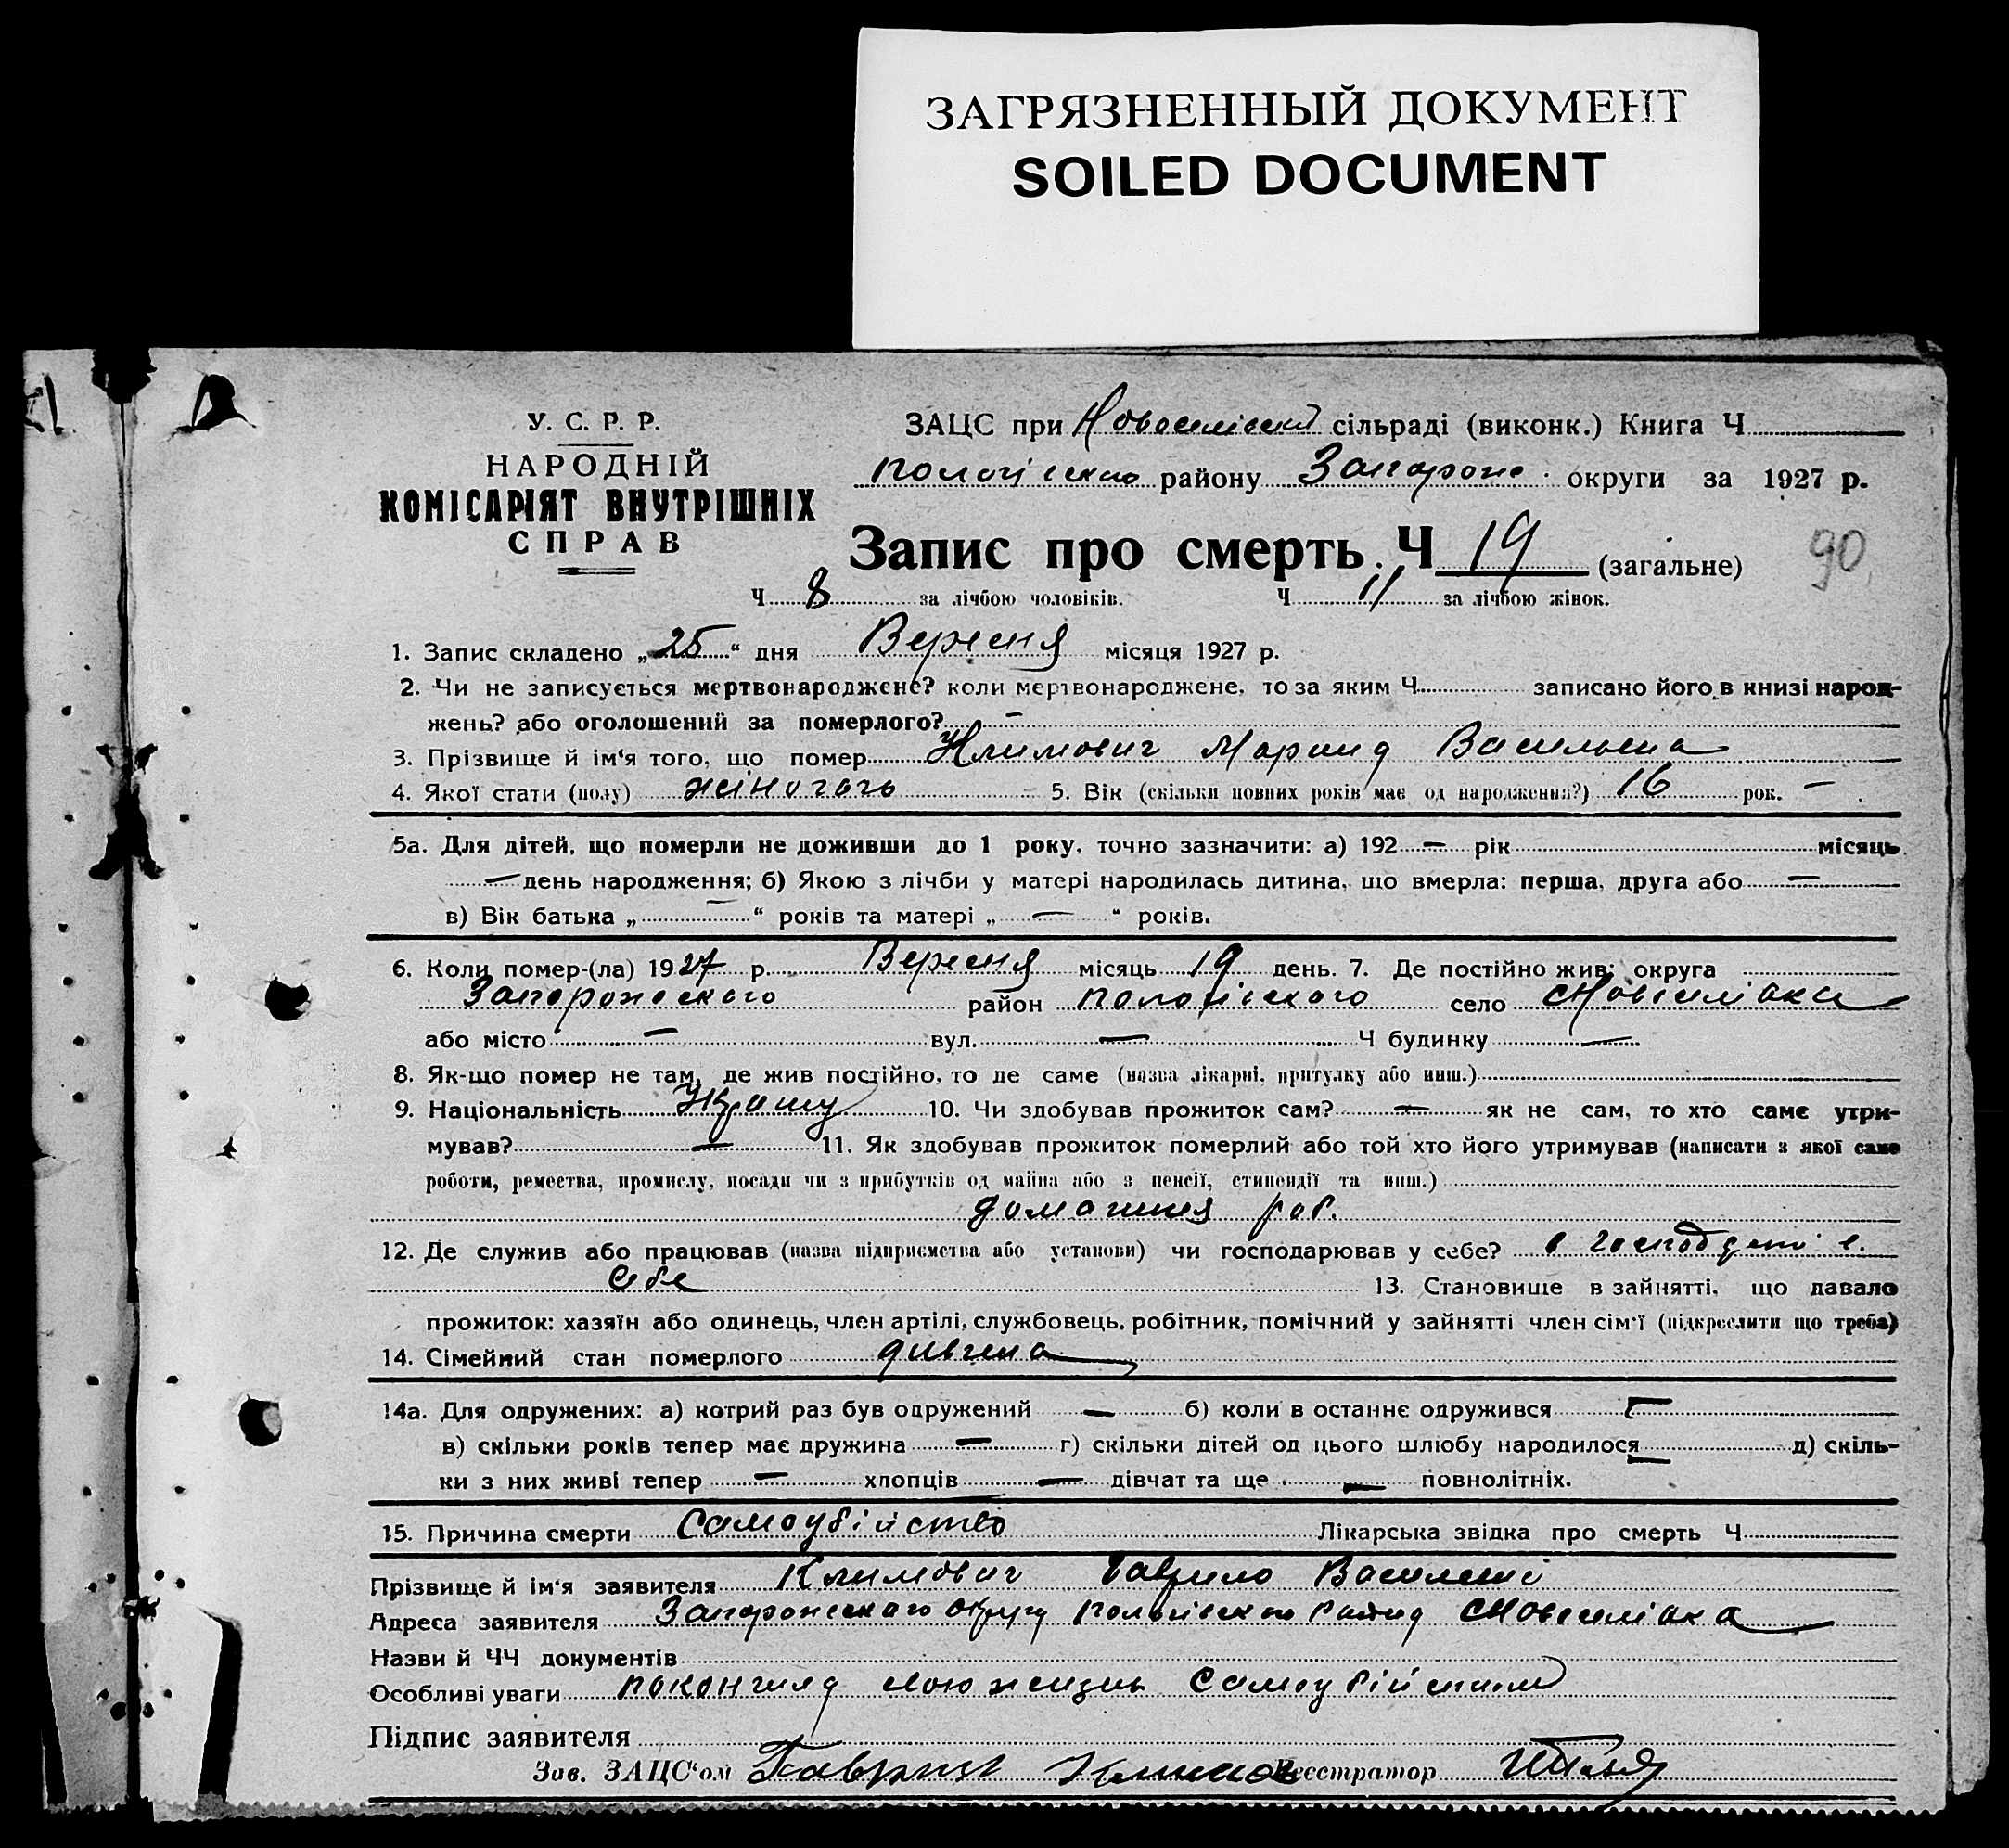 ЗАГРЯЗНЕННЫЙ ДОКУМЕНТ
SOILED DOCUMENT
У. С. Р. Р.
НАРОДНІЙ
КОМІСАРІЯТ ВНУТРІШНІХ
СПРАВ
ЗАЦС при сільраді (виконк.) Книга Ч
району Запорож. округи за 1927 р.
Запис про смерть. Ч 19 (загальне)
90
Ч 8 за лічбою чоловіків. Ч 11 за лічбою жінок.
1. Запис складено „25“ дня Вересня місяця 1927 р.
2. Чи не записується мертвонароджене? коли мертвонароджене, то за яким Ч записано його в книзі народ-
жень? або оголошений за померлого? —
3. Прізвище й ім‘я того, що помер Климович Васильена
4. Якої стати (полу) 5. Вік (скільки повних років має од народження?) 16 рок. —
5а. Для дітей, що померли не доживши до 1 року, точно зазначити: а) 192 — рік місяць
— день народження; б) Якою з лічби у матері народилась дитина, що вмерла: перша, друга або —
в) Вік батька „ — “ років та матері „ — “ років.
6. Коли помер-(ла) 1927 р. Вересня місяць 19 день. 7. Де постійно жив: округа
Запорожского район Пологівского село Новоселівка
або місто — вул. — Ч будинку —
8. Як-що помер не там, де жив постійно, то де саме (назва лікарні, притулку або инш.)
9. Національність 10. Чи здобував прожиток сам? — як не сам, то хто саме утри-
мував? — 11. Як здобував прожиток померлий або той хто його утримував (написати з якої саме
роботи, ремества, промислу, посади чи з прибутків од майна або з пенсії, стипендії та инш.)
домашня раб.
12. Де служив або працював (назва підприємства або установи) чи господарював у себе?
Себе 13. Становище в зайнятті, що давало
прожиток: хазяїн або одинець, член артілі, службовець, робітник, помічний у зайнятті член сім‘ї (підкреслити що треба)
14. Сімейний стан померлого дивчина
14а. Для одружених: а) котрий раз був одружений — б) коли в останнє одружився —
в) скільки років тепер має дружина — г) скільки дітей од цього шлюбу народилося — д) скіль-
ки з них живі тепер — хлопців — дівчат та ще — повнолітніх.
15. Причина смерти Самоубійство Лікарська звідка про смерть Ч
Прізвище й ім‘я заявителя Климович Гаврило
Адреса заявителя Запорожскаго округу Пологівского Новоселівка
Назви й ЧЧ документів
Особливі уваги покончила свою жизнь
Підпис заявителя
Зав. ЗАЦС‘ом Реєстратор